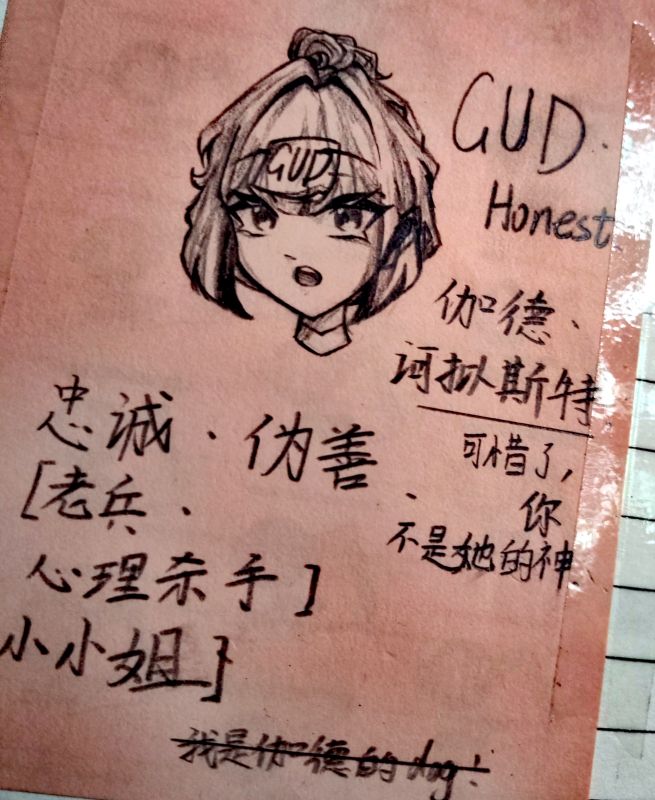 GUD
GUD.
Honest
伽德·
诃拟斯特
可惜了,
你
不是她的神.
忠诚·伪善.
[老兵·
心理杀手]
小小姐]
我是伽德的dog!